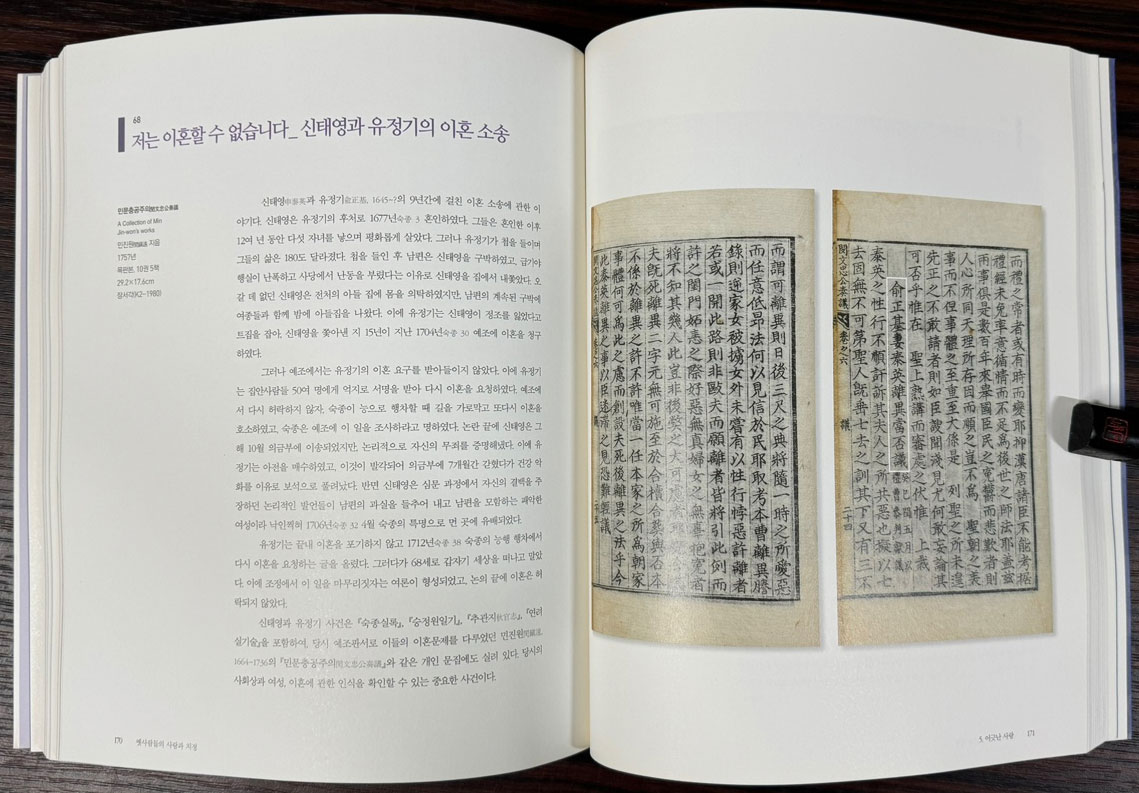 68
저는 이혼할 수 없습니다_ 신태영과 유정기의 이혼 소송
민문충공주의閔文忠公奏議
A Collection of Min
Jin-won's works
민진원閔鎭遠 지음
1757년
목판본, 10권 5책
29.2×17.6cm
장서각(K2-1980)
신태영申泰英과 유정기兪正基, 1645~?의 9년간에 걸친 이혼 소송에 관한 이
야기다. 신태영은 유정기의 후처로 1677년숙종 3 혼인하였다. 그들은 혼인한 이후
12여 년 동안 다섯 자녀를 낳으며 평화롭게 살았다. 그러나 유정기가 첩을 들이며
그들의 삶은 180도 달라졌다. 첩을 들인 후 남편은 신태영을 구박하였고, 급기야
행실이 난폭하고 사당에서 난동을 부렸다는 이유로 신태영을 집에서 내쫓았다. 오
갈 데 없던 신태영은 전처의 아들 집에 몸을 의탁하였지만, 남편의 계속된 구박에
여종들과 함께 밤에 아들집을 나왔다. 이에 유정기는 신태영이 정조를 잃었다고
트집을 잡아, 신태영을 쫓아낸 지 15년이 지난 1704년숙종 30 예조에 이혼을 청구
하였다.
그러나 예조에서는 유정기의 이혼 요구를 받아들이지 않았다. 이에 유정기
는 집안사람들 50여 명에게 억지로 서명을 받아 다시 이혼을 요청하였다. 예조에
서 다시 허락하지 않자, 숙종이 능으로 행차할 때 길을 가로막고 또다시 이혼을
호소하였고, 숙종은 예조에 이 일을 조사하라고 명하였다. 논란 끝에 신태영은 그
해 10월 의금부에 이송되었지만, 논리적으로 자신의 무죄를 증명해냈다. 이에 유
정기는 아전을 매수하였고, 이것이 발각되어 의금부에 7개월간 갇혔다가 건강 악
화를 이유로 보석으로 풀려났다. 반면 신태영은 심문 과정에서 자신의 결백을 주
장하던 논리적인 발언들이 남편의 과실을 들추어 내고 남편을 모함하는 패악한
여성이라 낙인찍혀 1706년숙종 32 4월 숙종의 특명으로 먼 곳에 유배되었다.
유정기는 끝내 이혼을 포기하지 않고 1712년숙종 38 숙종의 능행 행차에서
다시 이혼을 요청하는 글을 올렸다. 그러다가 68세로 갑자기 세상을 떠나고 말았
다. 이에 조정에서 이 일을 마무리짓자는 여론이 형성되었고, 논의 끝에 이혼은 허
락되지 않았다.
신태영과 유정기 사건은 『숙종실록』, 『승정원일기』, 『추관지秋官志』, 『연려
실기술』을 포함하여, 당시 예조판서로 이들의 이혼문제를 다루었던 민진원閔鎭遠,
1664~1736의 『민문충공주의閔文忠公奏議』와 같은 개인 문집에도 실려 있다. 당시의
사회상과 여성, 이혼에 관한 인식을 확인할 수 있는 중요한 사건이다.
170 옛사람들의 사랑과 치정
而禮之常者或有時而變耶抑漢唐諸臣不能考据
禮經未免率意循情而不足爲後世之師法耶蓋玆
兩事俱是數百年來擧國臣民之寃鬱而悲歎者則
人心所同天理所存因而順之豈不爲 聖朝之美
事而不但事體之至重至大係是 列聖之所未遑
先正之不敢請者則如臣謏聞淺見尤何敢妄論其
可否乎惟在 聖上熟講而審處之伏惟 上裁
兪正基妻泰英離異當否議
泰英之性行不順訐訴其夫人之所共惡也擬以七
去固無不可第聖人旣 去之訓其下又有三不
閔文忠公奏議 卷之六 議 二十四
而謂可離異則日後三尺之典將隨一時之所愛惡
而任意低昂法何以見信於民耶取考本曹離異謄
錄則逆家女被擄女外未嘗有以性行悖惡許離者
若或一開此路則非毆夫而願離者皆將引此例而
訐之閨門妬 之際好惡無眞婦女之無辜抱寃者
將不知其幾人此豈非後弊之大可慮者
夫旣死離異二字元無可施至於合櫝合葬與否本
不係於離異之許不許唯當一任本家之所爲朝家
事體何可爲此之慮而創設夫死後離異之法乎今
此泰英離異之事以臣迷滯之見恐難 議
5. 어긋난 사랑 171